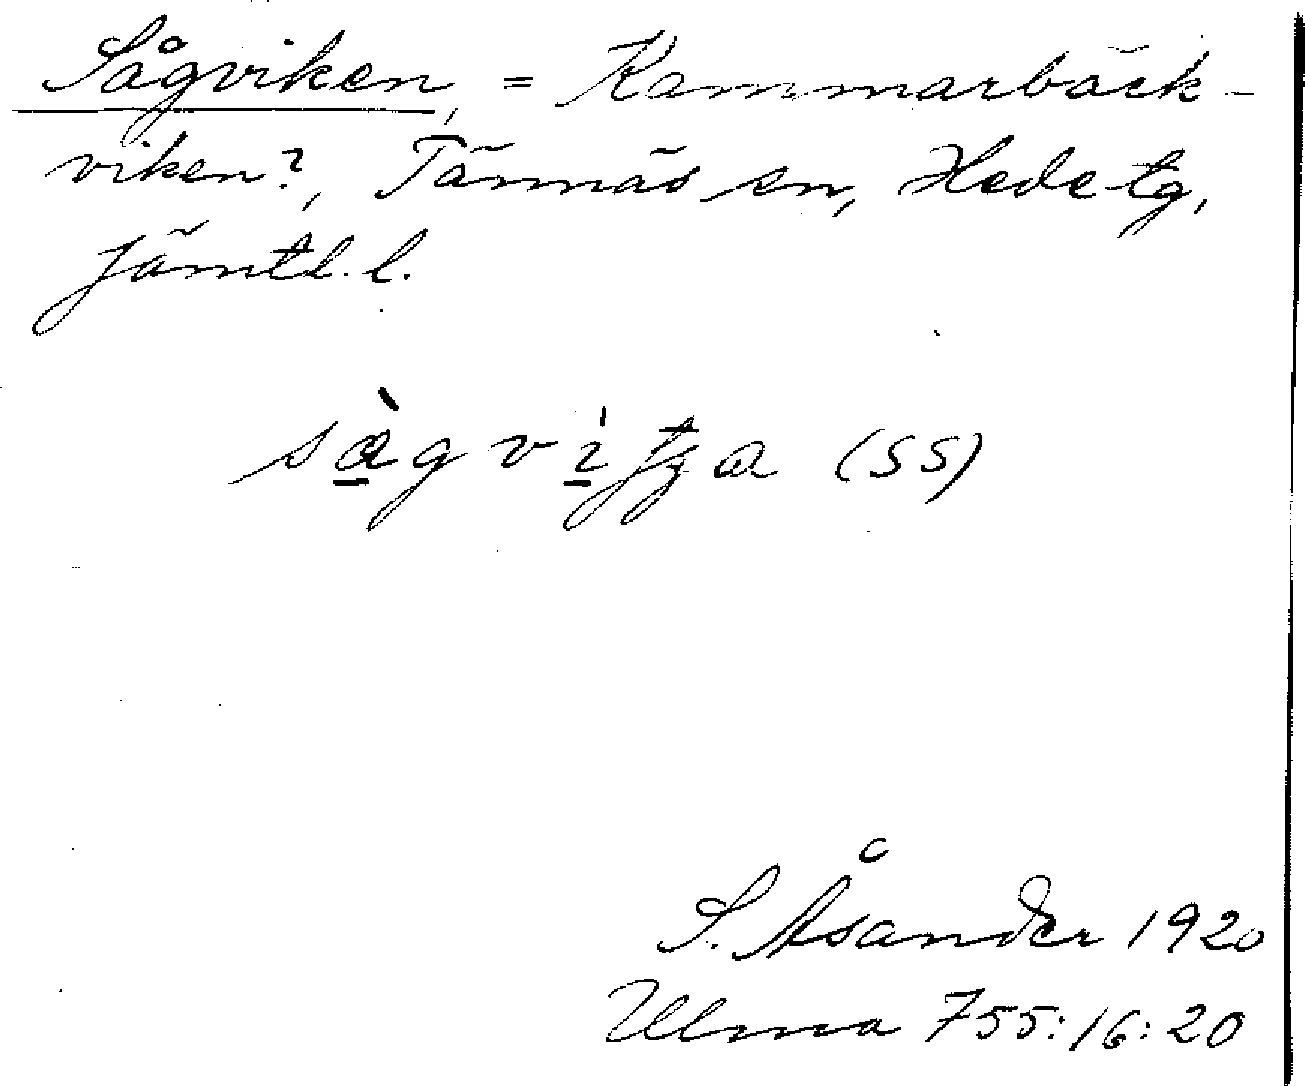 Sågviken, = Kammarbäck-
viken?, Tännäs sn, Hede tg,
Jämtl. l.
(SS)
S. Åsander 1920
Ulma 755:16:20